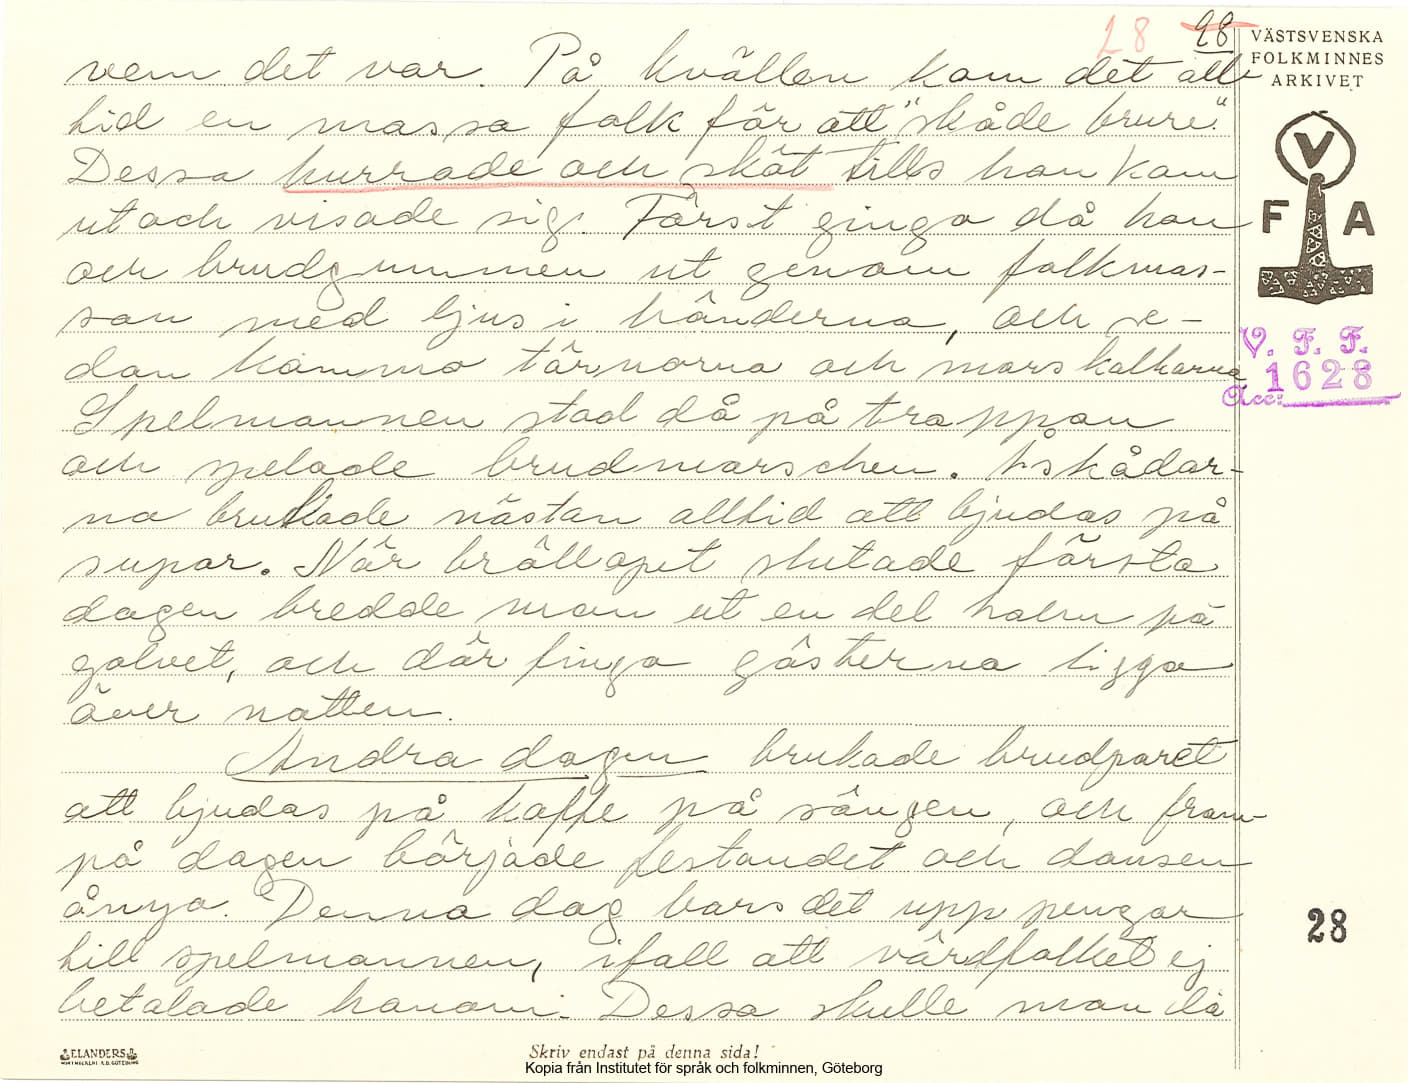 28 28
VÄSTSVENSKA
FOLKMINNES
ARKIVET
V
F A
V. F. F.
Acc: 1628
vem det var. På kvällen kom det all-
tid en massa folk för att "skåde brure."
Dessa hurrade och sköt tills hon kom
ut och visade sig. Först gingo då hon
och brudgummen ut genom folkmas-
san med ljus i händerna, och se-
dan kommo tärnorna och marskalkarna
Spelmannen stod då på trappan
och spelade brudmarschen. Åskådar-
na brukade nästan alltid att bjudas på
supar. När bröllopet slutade första
dagen bredde man ut en del halm på
golvet, och där fingo gästerna ligga
över natten.
Andra dagen brukade brudparet
att bjudas på kaffe på sängen, och fram-
på dagen började festandet och dansen
ånyo. Denna dag bars det upp pengar
till spelmannen, ifall att värdfolket ej
betalade honom. Dessa skulle man då
28
ELANDERS
Skriv endast på denna sida!
Kopia från Institutet för språk och folkminnen, Göteborg